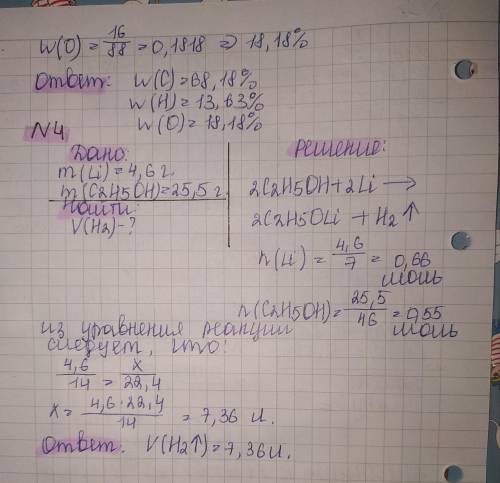 W(O) = 16/88 = 0,1818 => 18,18%
Ответ: W(C)=68,18%
W(H)=13,63%
W(O)=18,18%
N4
Дано:
m(Li)=4,6 г.
m(C2H5OH)=25,5 г.
Найти:
V(H2)-?
Решение:
2C2H5OH+2Li →
2C2H5OLi + H2↑
n(Li) = 4,6/7 = 0,66 моль
n(C2H5OH)= 25,5/46 = 0,55 моль
из уравнения реакции
следует, что:
4,6/14 = x/22,4
x = 4,6·22,4/14 = 7,36 л.
Ответ. V(H2↑)=7,36л.